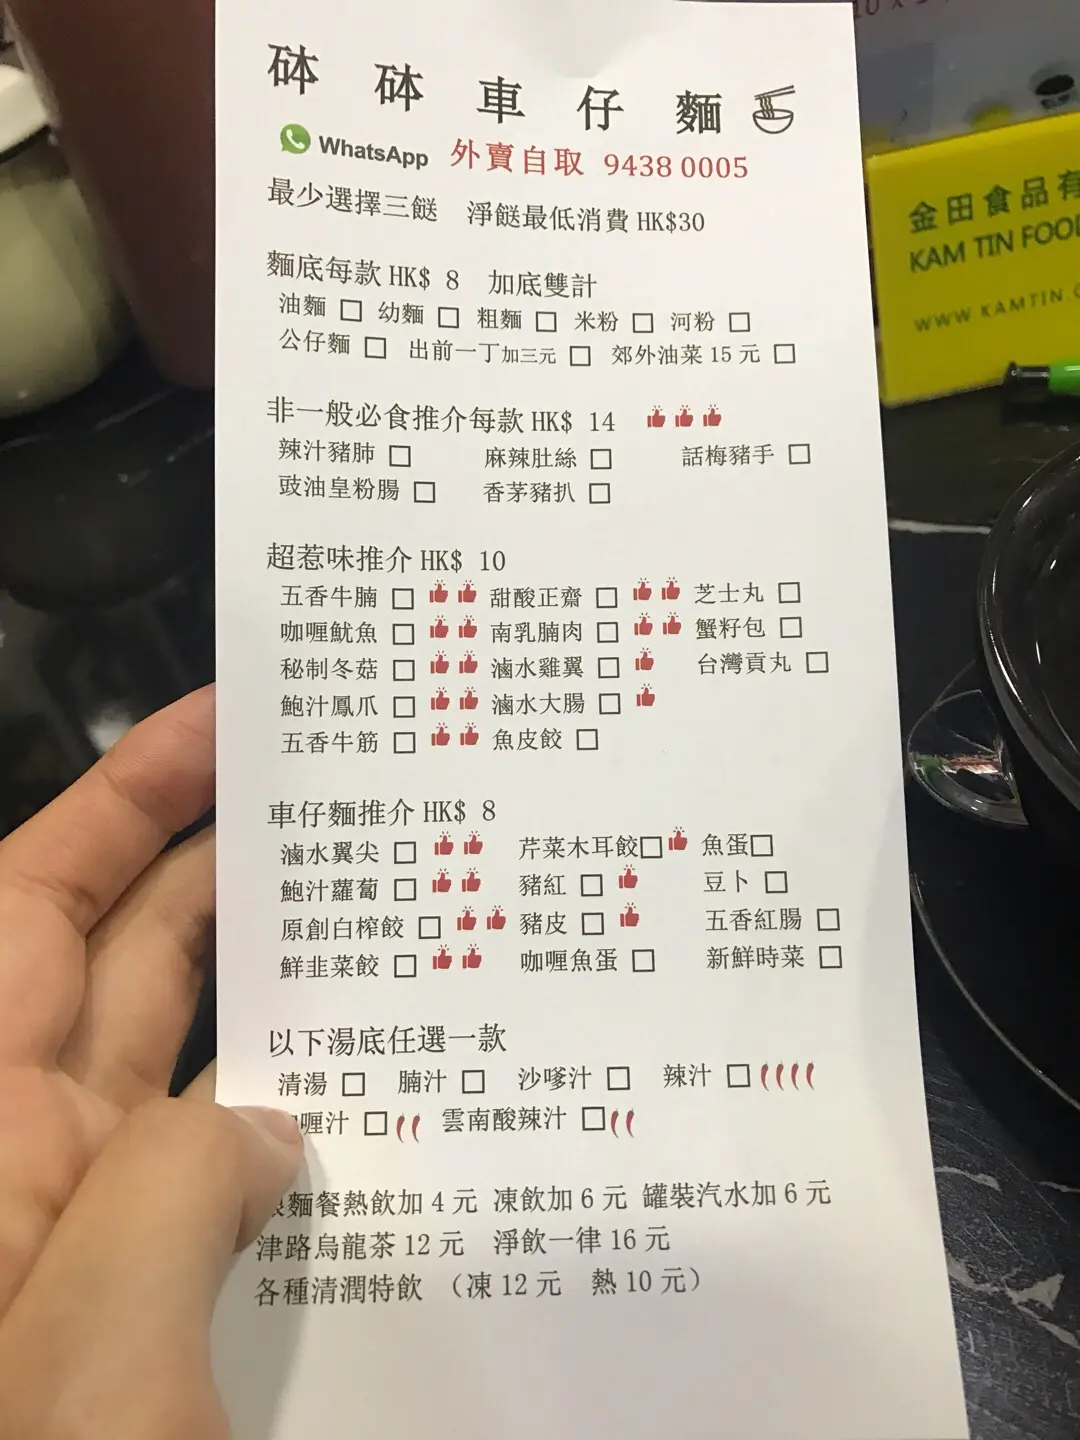 砵砵車仔麵
WhatsApp 外賣自取 9438 0005
最少選擇三餸 淨餸最低消費 HK$30
麵底每款 HK$ 8 加底雙計
油麵 □ 幼麵 □ 粗麵 □ 米粉 □ 河粉 □
公仔麵 □ 出前一丁加三元 □ 郊外油菜 15 元 □
非一般必食推介每款 HK$ 14
辣汁豬肺 □ 麻辣肚絲 □ 話梅豬手 □
豉油皇粉腸 □ 香茅豬扒 □
超惹味推介 HK$ 10
五香牛腩 □ 甜酸正齋 □ 芝士丸 □
咖喱魷魚 □ 南乳腩肉 □ 蟹籽包 □
秘制冬菇 □ 滷水雞翼 □ 台灣貢丸 □
鮑汁鳳爪 □ 滷水大腸 □
五香牛筋 □ 魚皮餃 □
車仔麵推介 HK$ 8
滷水翼尖 □ 芹菜木耳餃□ 魚蛋□
鮑汁蘿蔔 □ 豬紅 □ 豆卜 □
原創白榨餃 □ 豬皮 □ 五香紅腸 □
鮮韭菜餃 □ 咖喱魚蛋 □ 新鮮時菜 □
以下湯底任選一款
清湯 □ 腩汁 □ 沙嗲汁 □ 辣汁 □
喱汁 □ 雲南酸辣汁 □
麵餐熱飲加 4 元 凍飲加 6 元 罐裝汽水加 6 元
津路烏龍茶 12 元 淨飲一律 16 元
各種清潤特飲 （凍 12 元 熱 10 元）
金田食品有
KAM TIN FOO
WWW.KAMTIN.